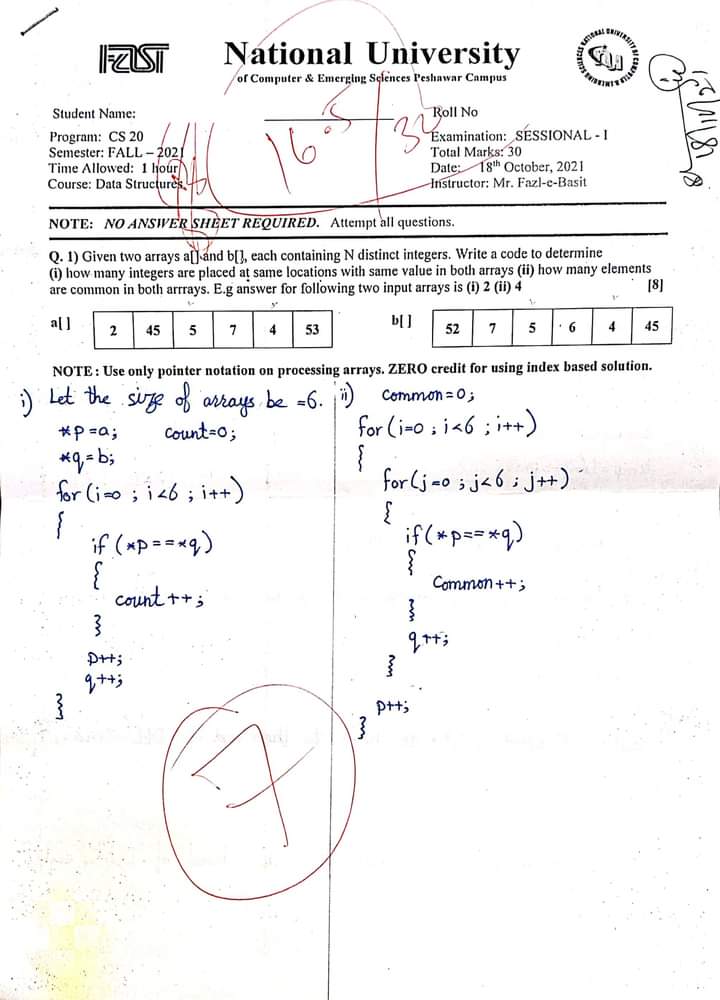 FAST
National University
of Computer & Emerging Sciences Peshawar Campus
Student Name:
Roll No
Program: CS 20
Examination: SESSIONAL - I
Semester: FALL – 2021
Total Marks: 30
Time Allowed: 1 hour
Date: 18th October, 2021
Course: Data Structures
Instructor: Mr. Fazl-e-Basit
16.5
30
NOTE: NO ANSWER SHEET REQUIRED. Attempt all questions.
Q. 1) Given two arrays a[] and b[], each containing N distinct integers. Write a code to determine
(i) how many integers are placed at same locations with same value in both arrays (ii) how many elements
are common in both arrrays. E.g answer for following two input arrays is (i) 2 (ii) 4 [8]
a[ ] 2 45 5 7 4 53
b[ ] 52 7 5 6 4 45
NOTE : Use only pointer notation on processing arrays. ZERO credit for using index based solution.
i) Let the size of arrays be =6.
*p=a; count=0;
*q=b;
for(i=0 ; i<6 ; i++)
{
if (*p==*q)
{
count++;
}
p++;
q++;
}
ii) Common=0;
for(i=0 ; i<6 ; i++)
{
for(j=0 ; j<6 ; j++)
{
if(*p==*q)
{
Common++;
}
q++;
}
p++;
}
7